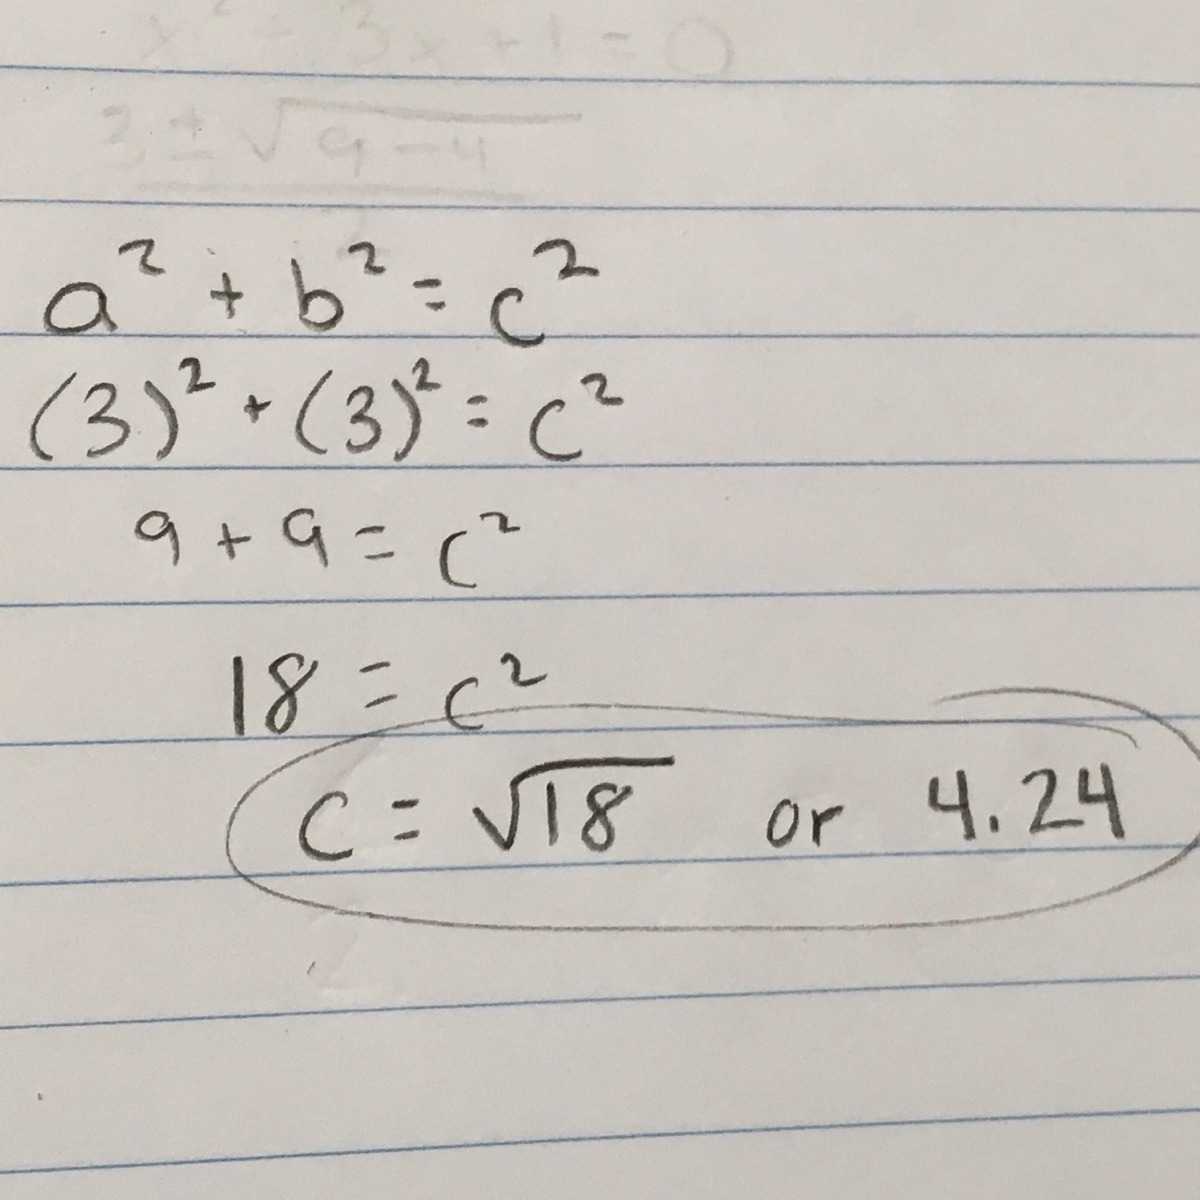 x² - 3x + 1 = 0
3 ± √9 - 4
2
a² + b² = c²
(3)² + (3)² = c²
9 + 9 = c²
18 = c²
c = √18 or 4.24